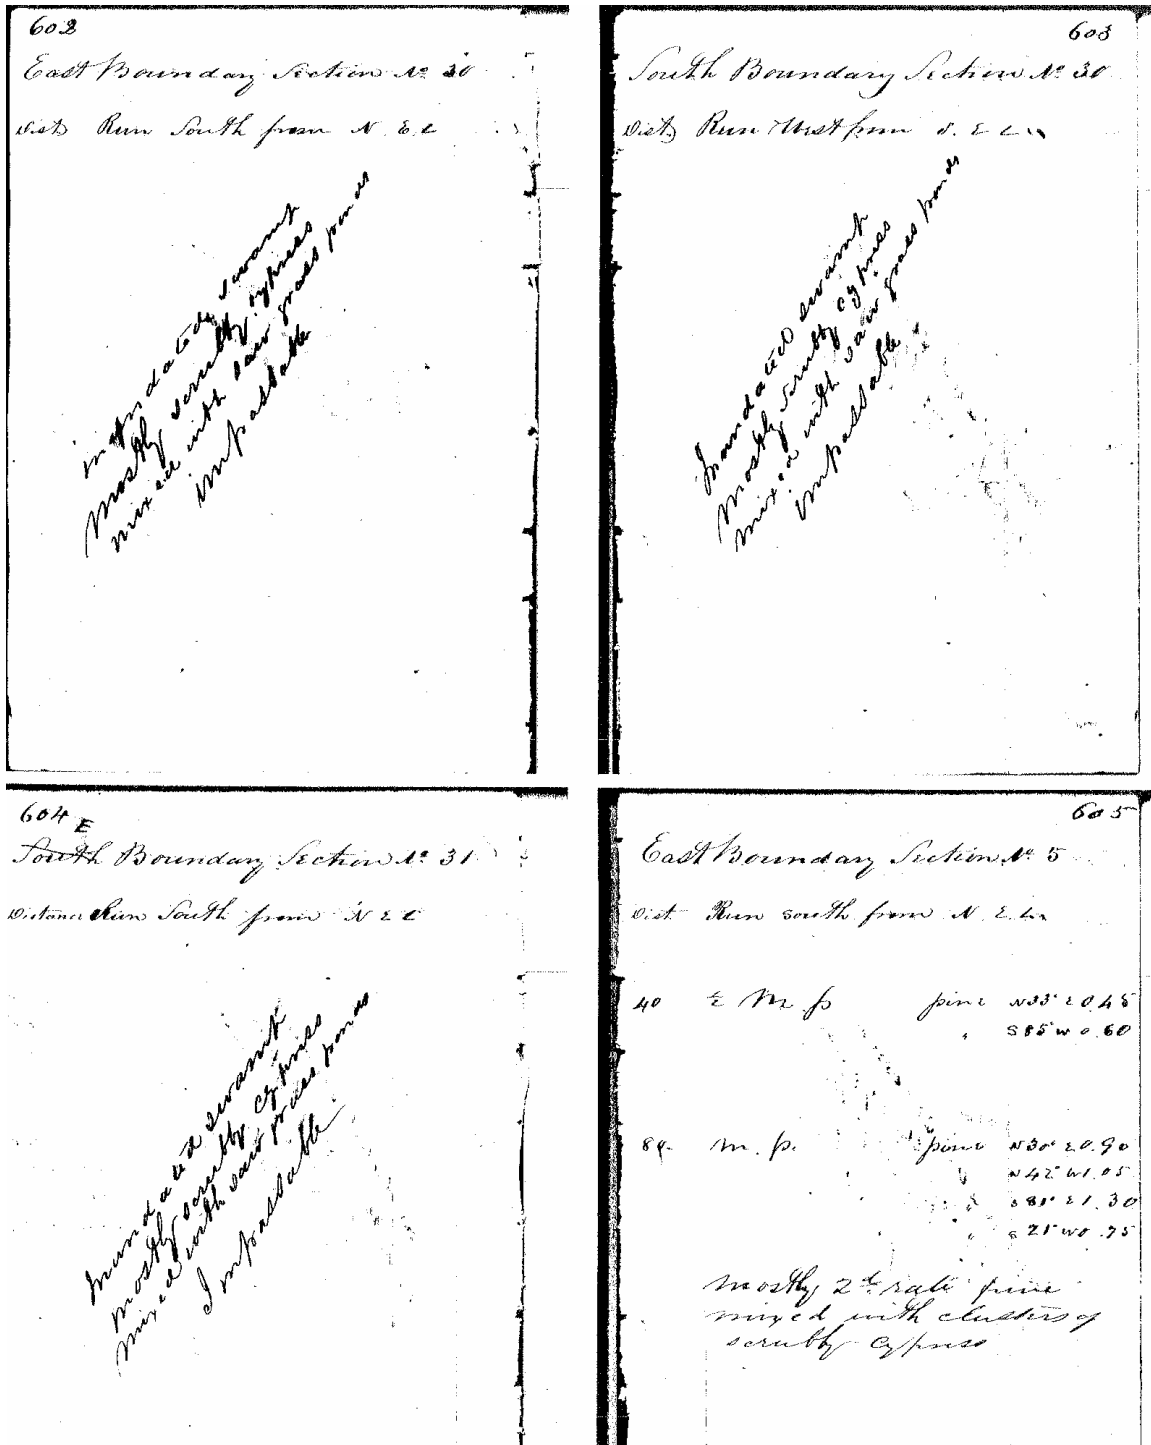 602
East Boundary Section No 30
Dist) Run South from N. E. C
inundated swamp
mostly scrubby cypress
mixed with saw grass ponds
impassable
603
South Boundary Section No 30
Dist) Run West from S. E C
Inundated swamp
mostly scrubby cypress
mixed with saw grass ponds
impassable
604
E
South Boundary Section No 31
Distance Run South from N E C
Inundated swamp
mostly scrubby cypress
mixed with saw grass ponds
Impassable
605
East Boundary Section No 5
Dist Run south from N. E. C.
40 ½ M p pine N 35 E 0.45
" S 85 W 0.60
80. M. p. pine N 30 E 0.90
" N 42 W 1.05
" S 81 E 1.30
" S 21 W 0.75
mostly 2d rate pine
mixed with clusters of
scrubby cypress